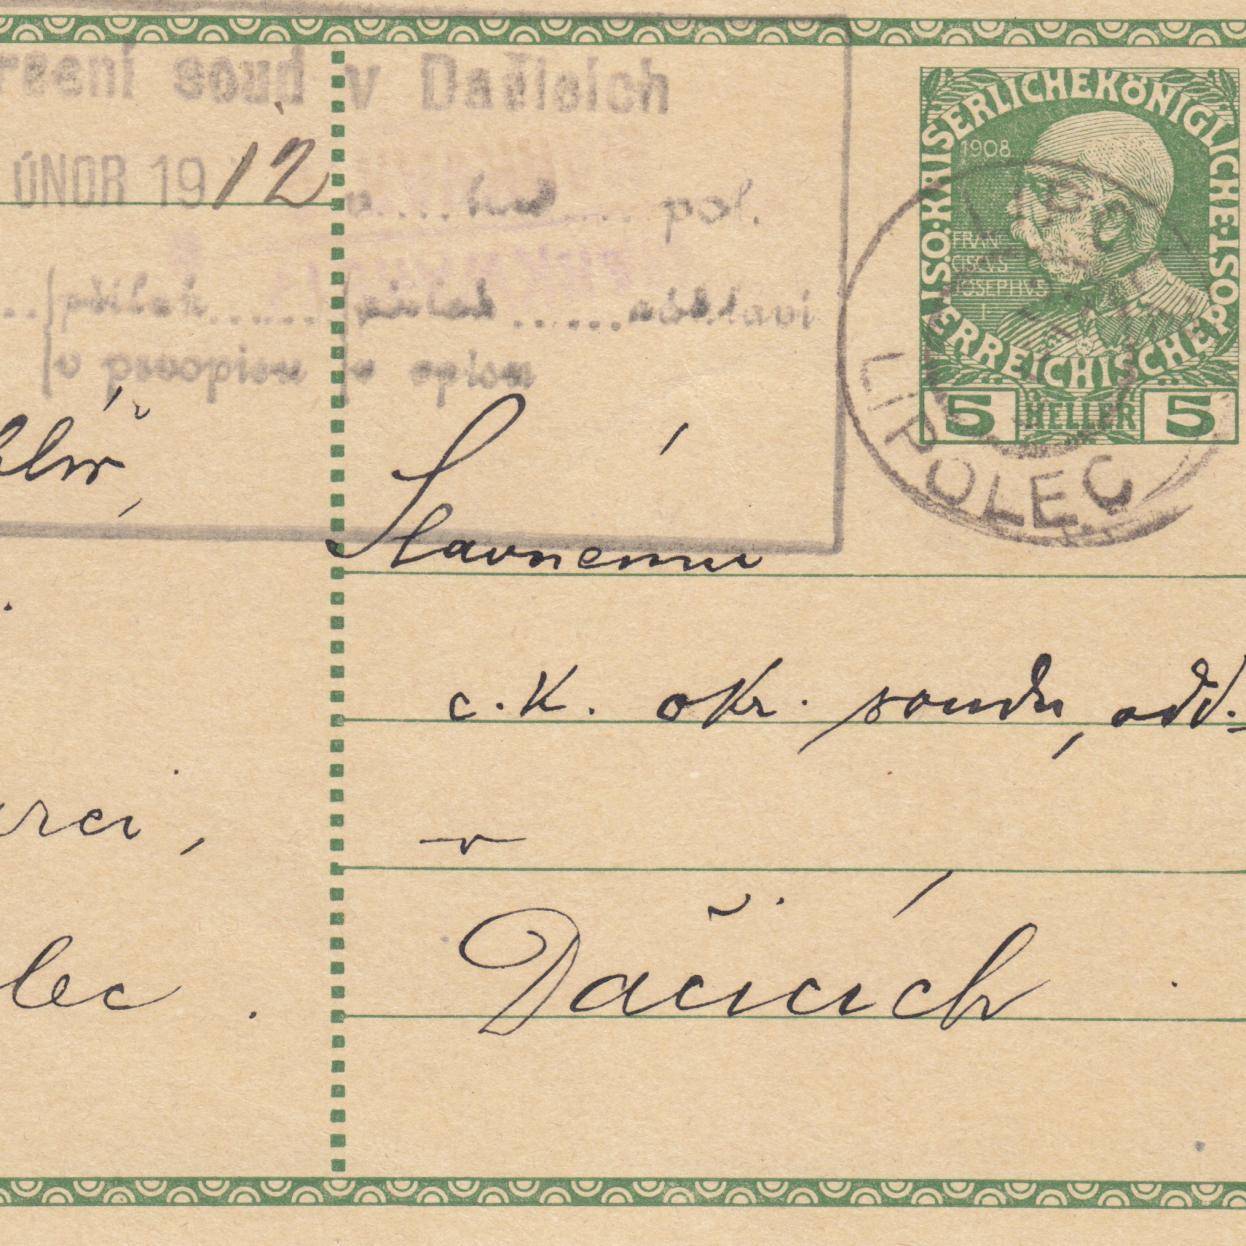 resní soud v Dačicích
ÚNOR 1912
v....hod.... pol.
.. příloh...... přiloh ......náhlaví
v prvopisu v opisu
KAISERLICHEKÖNIGLICHE
ÖSTERREICHISCHEPOST
1908
FRAN
CISCVS
JOSEPHVS
I
5 HELLER 5
LIPOLEC
Slavnému
c. k. okr. soudu, odd.
v
rci,
Dačicích
lec.